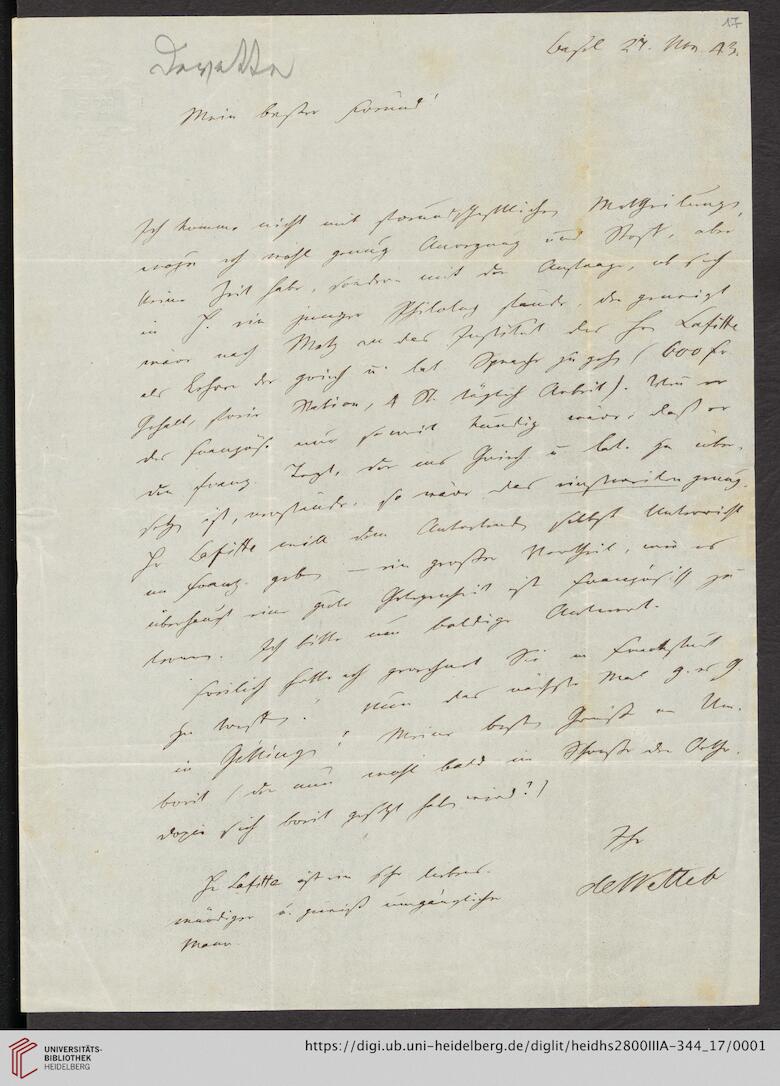 17
Dewette
Basel 24. Nov. 43.
Mein bester Freund!
Ich komme nicht mit freundschaftlichen Mittheilungen,
wozu ich wohl genug Anregung und Stoff, aber
keine Zeit habe, sondern mit der Anfrage, ob sich
in H. ein junger Philolog fände, der geneigt
wäre nach Metz an das Institut des Hrn Lafitte
als Lehrer der griech. u. lat. Sprache zu gehen (600 fr
Gehalt, freie Station, 4 St. täglich Arbeit). Wenn er
des Französ. nur soweit kundig wäre, daß er
den franz. Text, der ins Griech. u. lat. zu über-
setzen ist, verstünde, so wäre das einstweilen genug.
Hr Lafitte will dem Antretenden selbst Unterricht
im Franz. geben — ein großer Vortheil, wie es
überhaupt eine gute Gelegenheit ist Französisch zu
lernen. Ich bitte um baldige Antwort.
Freilich hatte ich gerechnet Sie in
zu treffen! Nun das nächste Mal g. es G.
in Göttingen! Meine besten Grüße an Um-
breit (der nun wohl bald im Schooße der Ortho-
doxie sich breit gesetzt haben wird!)
Ihr
deWette
Hr Lafitte ist ein sehr liebens-
würdiger u. gewiß umgänglicher
Mann.
UNIVERSITÄTS-
BIBLIOTHEK
HEIDELBERG
https://digi.ub.uni-heidelberg.de/diglit/heidhs2800IIIA-344_17/0001